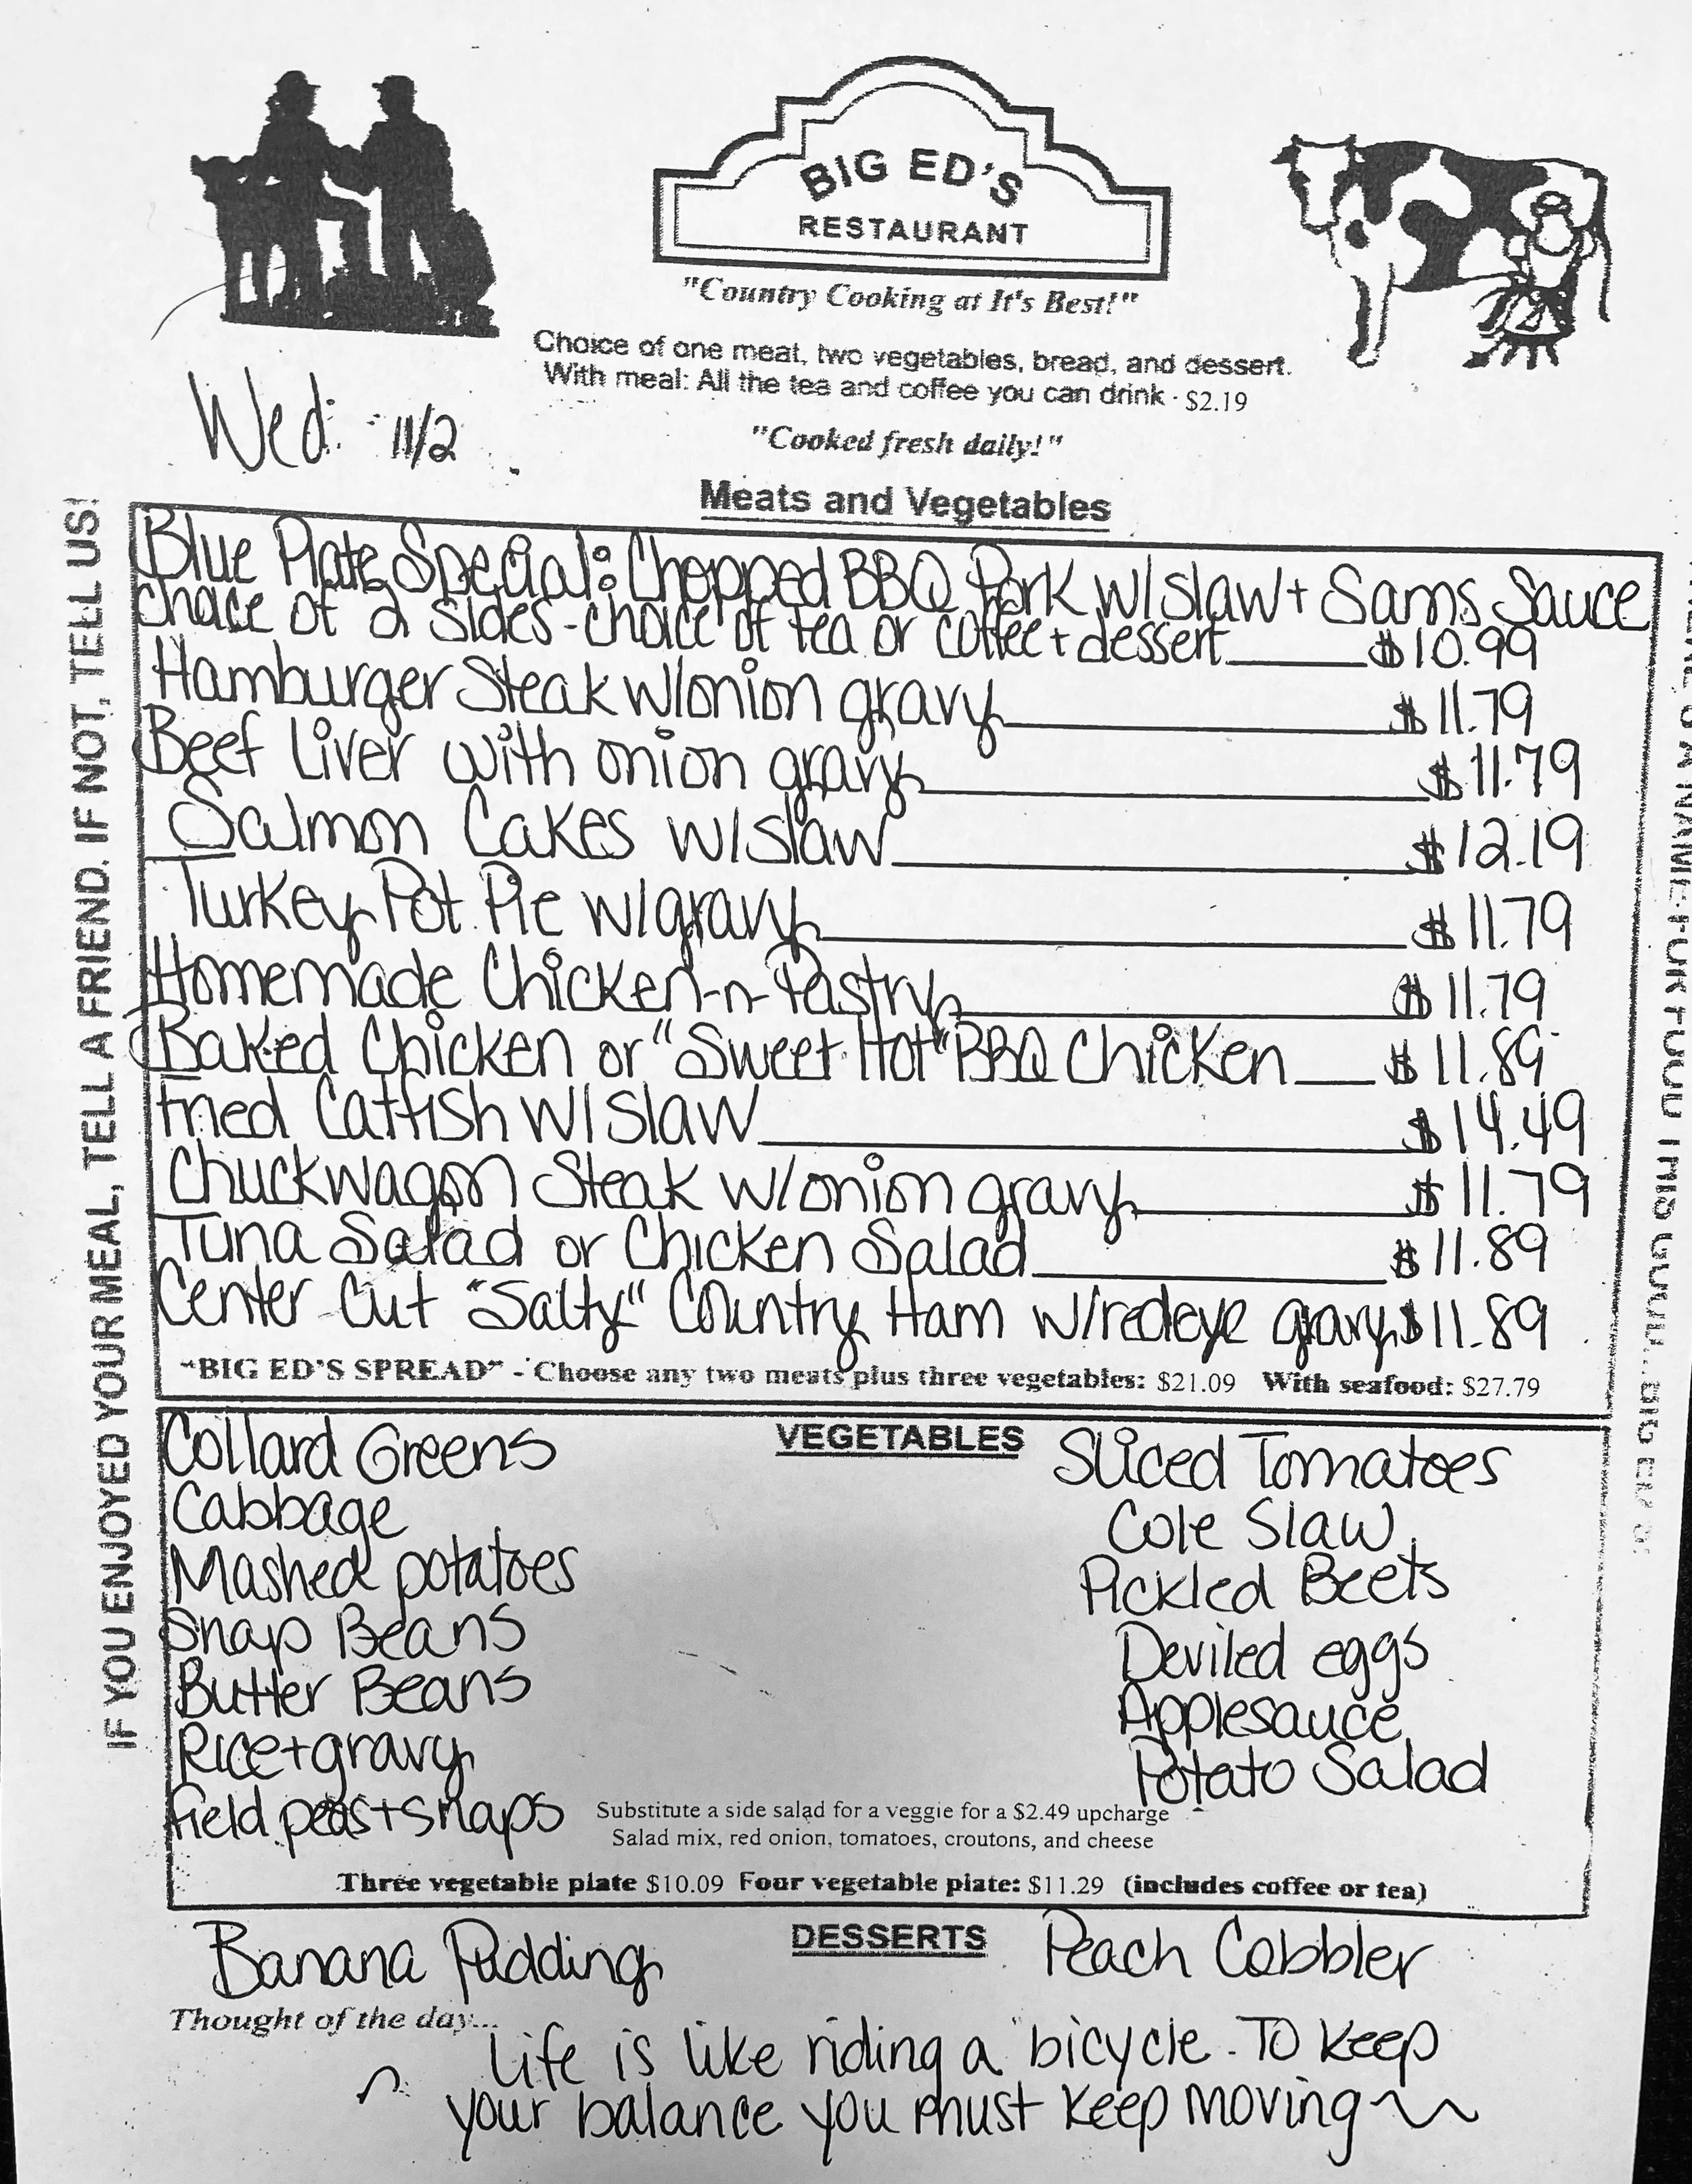 BIG ED'S
RESTAURANT
"Country Cooking at It's Best!"
Choice of one meat, two vegetables, bread, and dessert.
With meal: All the tea and coffee you can drink - $2.19
Wed: 11/2
"Cooked fresh daily!"
Meats and Vegetables
Blue Plate Special: Chopped BBQ Pork w/slaw + Sams Sauce
choice of 2 sides - choice of tea or coffee + dessert $10.99
Hamburger Steak w/onion gravy $11.79
Beef Liver with onion gravy $11.79
Salmon Cakes w/slaw $12.19
Turkey Pot Pie w/gravy $11.79
Homemade Chicken-n-Pastry $11.79
Baked Chicken or "Sweet Hot" BBQ Chicken $11.89
Fried Catfish w/slaw $14.49
Chuckwagon Steak w/onion gravy $11.79
Tuna Salad or Chicken Salad $11.89
Center Cut "Salty" Country Ham w/redeye gravy $11.89
"BIG ED'S SPREAD" - Choose any two meats plus three vegetables: $21.09 With seafood: $27.79
VEGETABLES
Collard Greens
Cabbage
Mashed potatoes
Snap Beans
Butter Beans
Rice + gravy
field peas + snaps
Sliced Tomatoes
Cole Slaw
Pickled Beets
Deviled eggs
Applesauce
Potato Salad
Substitute a side salad for a veggie for a $2.49 upcharge
Salad mix, red onion, tomatoes, croutons, and cheese
Three vegetable plate $10.09 Four vegetable plate: $11.29 (includes coffee or tea)
DESSERTS
Banana Pudding
Peach Cobbler
Thought of the day...
Life is like riding a bicycle. To keep
your balance you must keep moving
IF YOU ENJOYED YOUR MEAL, TELL A FRIEND. IF NOT, TELL US!
A NAME FOR FOOD THIS GOOD...BIG ED'S!